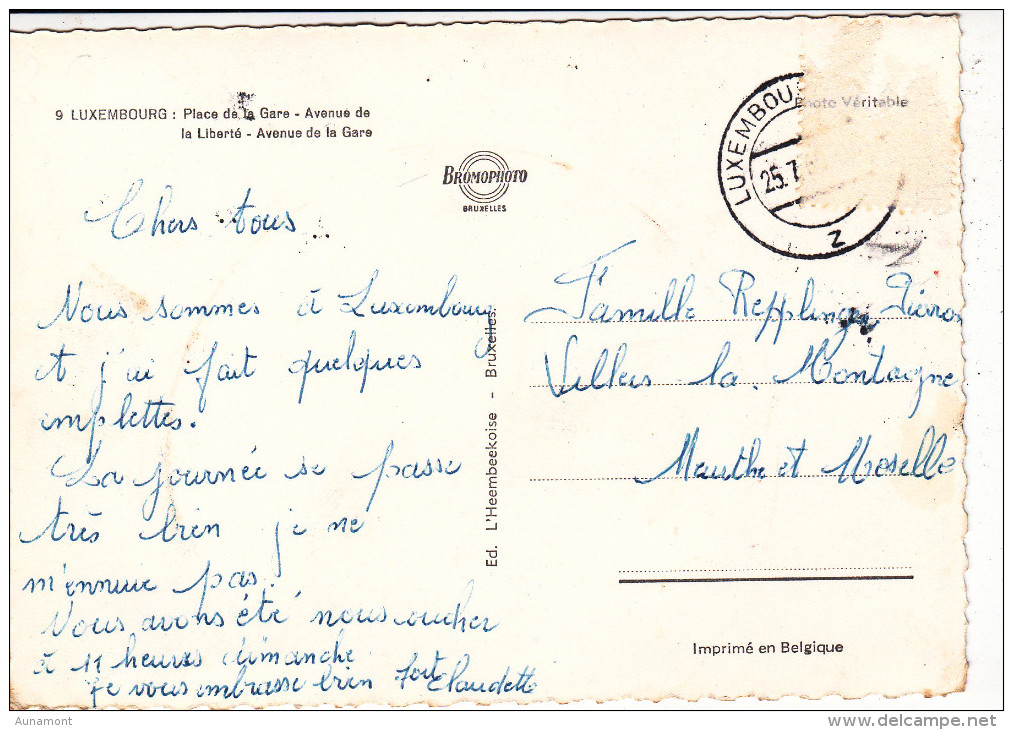 9 LUXEMBOURG : Place de la Gare - Avenue de
la Liberté - Avenue de la Gare
BROMOPHOTO
BRUXELLES
Photo Véritable
LUXEMBOU
25.7
z
Chers tous
Nous sommes à Luxembourg
et j'ai fait quelques
emplettes.
La journée se passe
très bien je ne
m'ennuie pas.
Nous avons été nous coucher
à 11 heures dimanche.
Je vous embrasse bien fort Claudette
Ed. L'Heembeekoise - Bruxelles.
Famille Repplinger Pierron
Villers la Montagne
Meurthe et Moselle
Imprimé en Belgique
Aunamont
delcampe.net